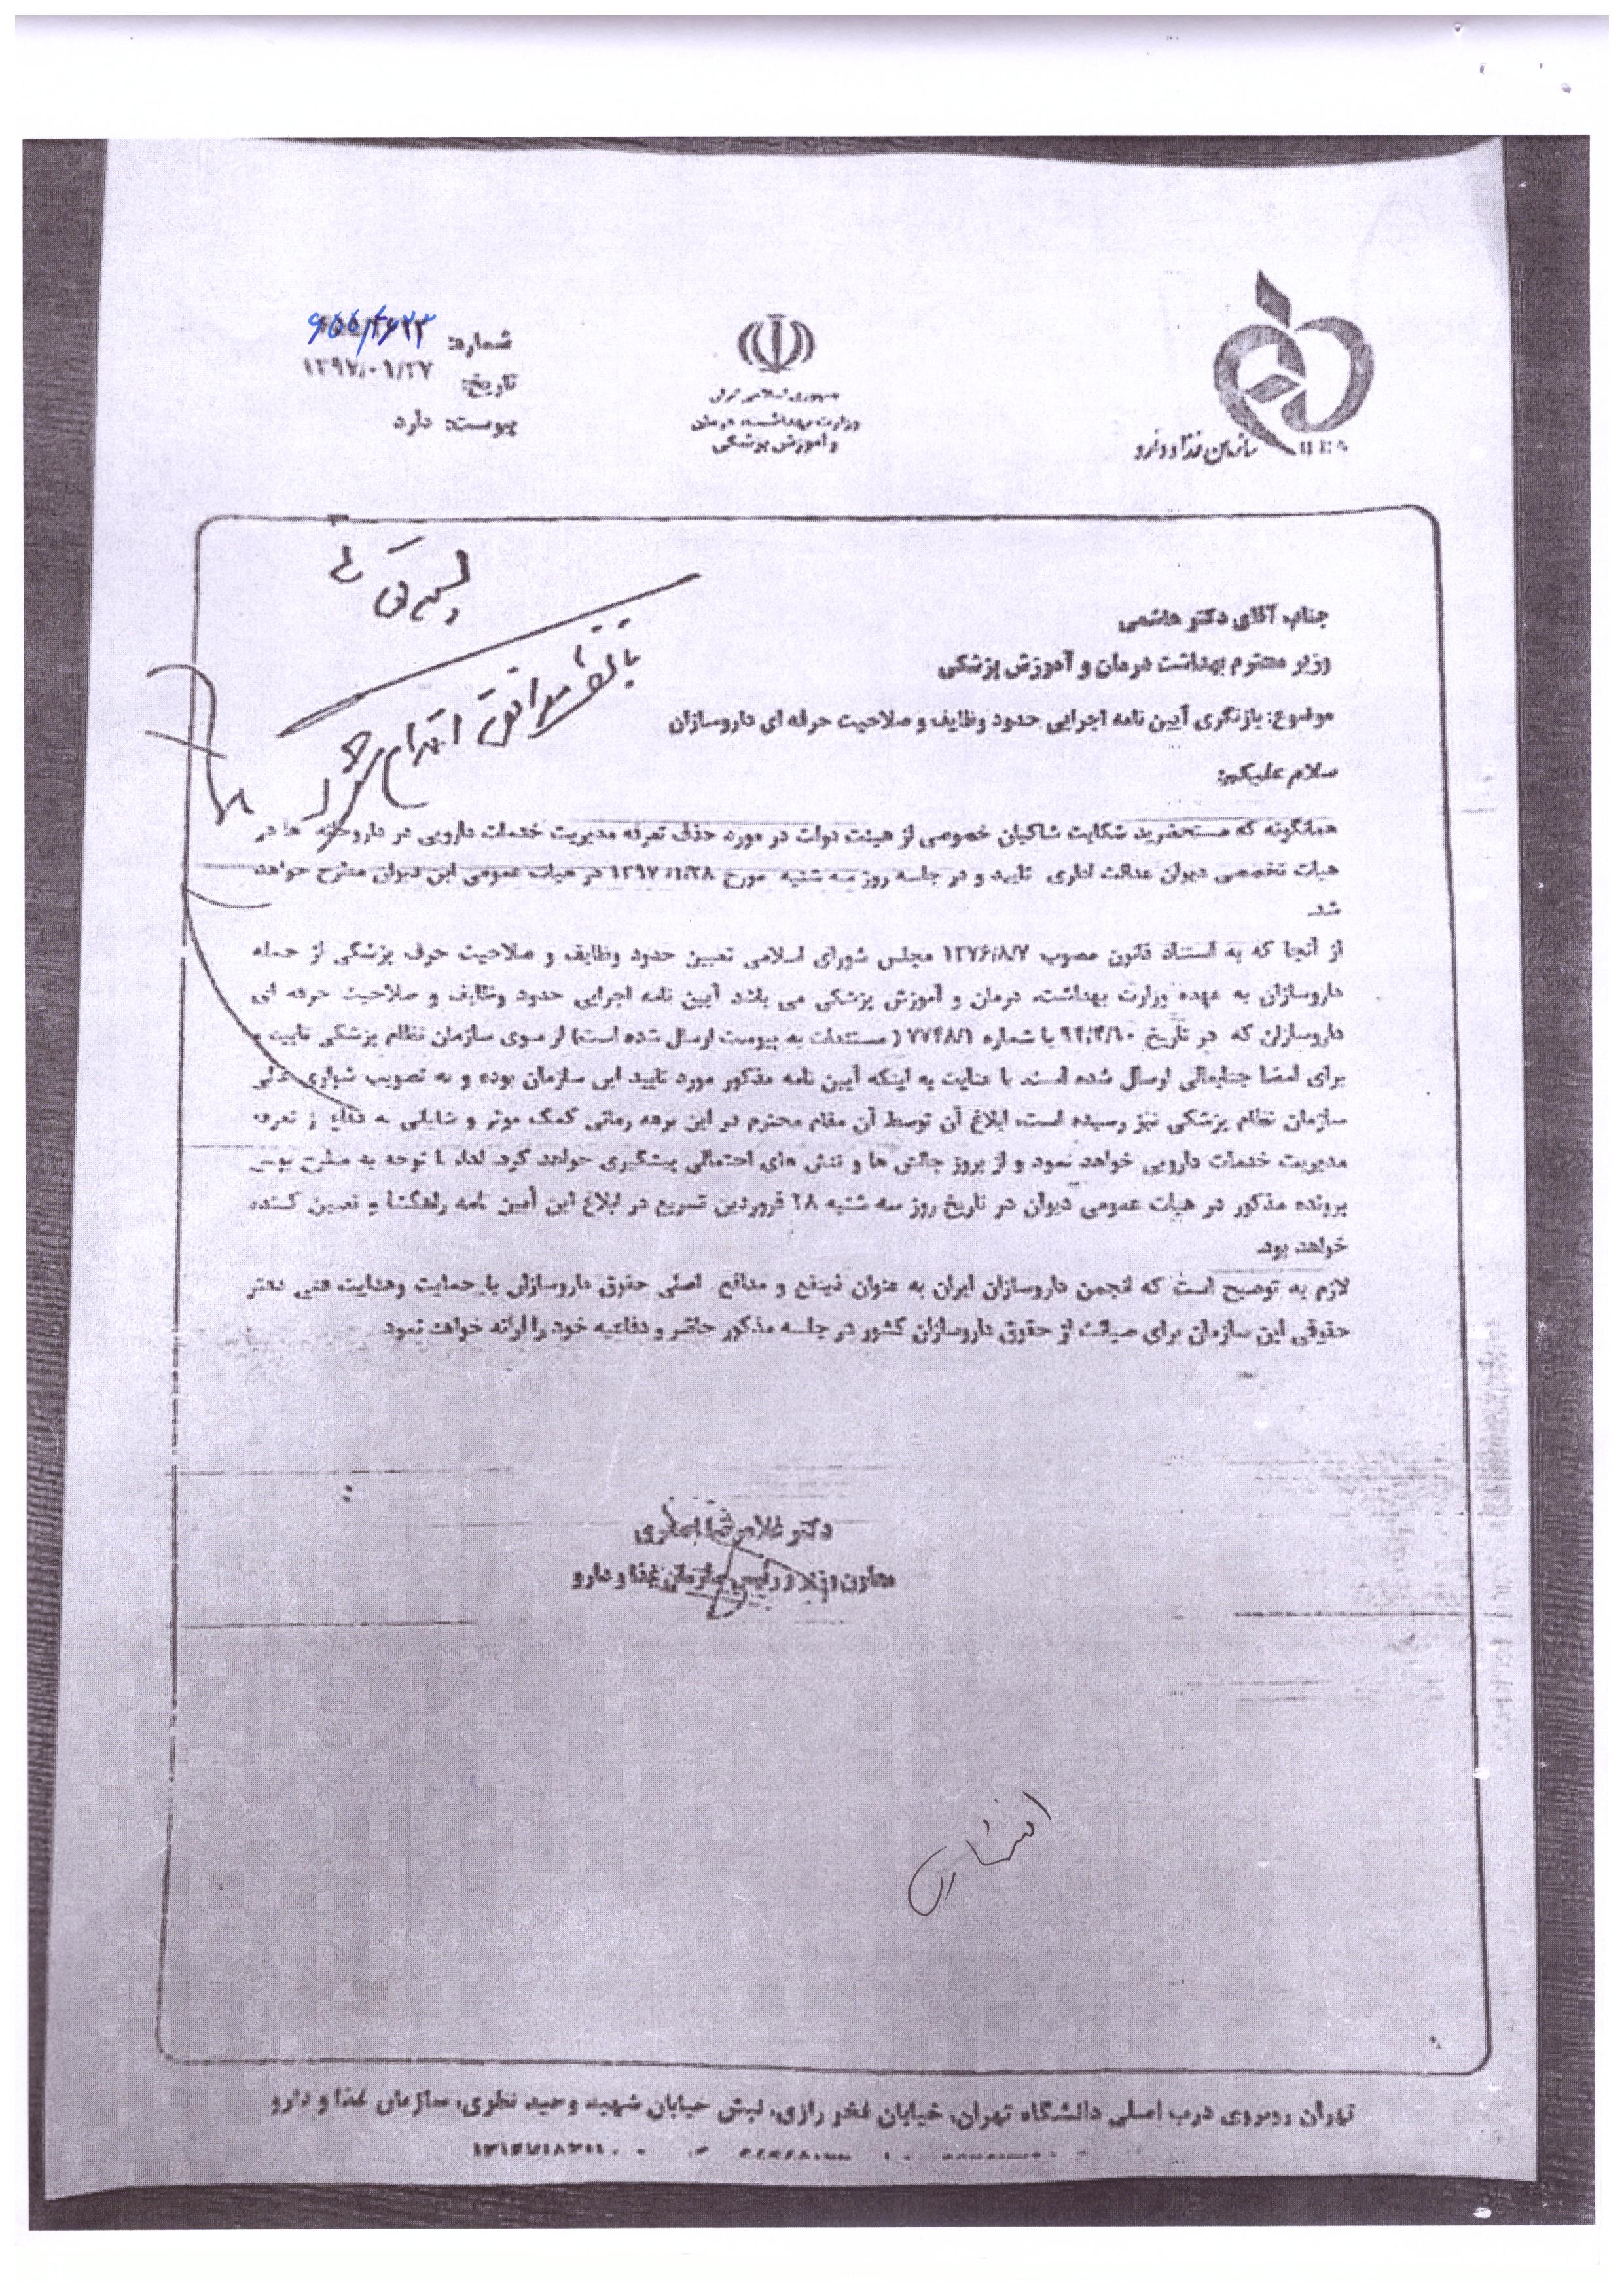 سازمان غذا و دارو
جمهوری اسلامی ایران
وزارت بهداشت، درمان
و آموزش پزشکی
شماره:
تاریخ: ۱۳۹۷/۰۱/۲۷
پیوست: دارد
جناب آقای دکتر هاشمی
وزیر محترم بهداشت درمان و آموزش پزشکی
موضوع: بازنگری آیین نامه اجرایی حدود وظایف و صلاحیت حرفه ای داروسازان
سلام علیکم:
با موافقت اقدام شود
همانگونه که مستحضرید شکایت شاکیان خصوصی از هیئت دولت در مورد حذف تعرفه مدیریت خدمات دارویی در داروخانه ها در
هیات تخصصی دیوان عدالت اداری تایید و در جلسه روز سه شنبه مورخ ۱۳۹۷/۰۱/۲۸ در هیات عمومی این دیوان مطرح خواهد
شد.
از آنجا که به استناد قانون مصوب ۱۳۷۶/۸/۷ مجلس شورای اسلامی تعیین حدود وظایف و صلاحیت حرف پزشکی از جمله
داروسازان به عهده وزارت بهداشت، درمان و آموزش پزشکی می باشد آیین نامه اجرایی حدود وظایف و صلاحیت حرفه ای
داروسازان که در تاریخ ۹۴/۴/۱۰ با شماره ( مستندات به پیوست ارسال شده است) از سوی سازمان نظام پزشکی تایید و
برای امضا جنابعالی ارسال شده است. با عنایت به اینکه آیین نامه مذکور مورد تایید این سازمان بوده و به تصویب شورای عالی
سازمان نظام پزشکی نیز رسیده است، ابلاغ آن توسط آن مقام محترم در این برهه زمانی کمک موثر و شایانی به دفاع از تعرفه
مدیریت خدمات دارویی خواهد نمود و از بروز چالش ها و تنش های احتمالی پیشگیری خواهد کرد. لذا، با توجه به مطرح بودن
پرونده مذکور در هیات عمومی دیوان در تاریخ روز سه شنبه ۲۸ فروردین تسریع در ابلاغ این آیین نامه راهگشا و تعیین کننده
خواهد بود.
لازم به توضیح است که انجمن داروسازان ایران به عنوان ذینفع و مدافع اصلی حقوق داروسازان با حمایت وهدایت فنی دفتر
حقوقی این سازمان برای صیانت از حقوق داروسازان کشور در جلسه مذکور حاضر و دفاعیه خود را ارائه خواهد نمود.
دکتر غلامرضا اصغری
معاون وزیر و رئیس سازمان غذا و دارو
تهران روبروی درب اصلی دانشگاه تهران، خیابان فخر رازی، نبش خیابان شهید وحید نظری، سازمان غذا و دارو